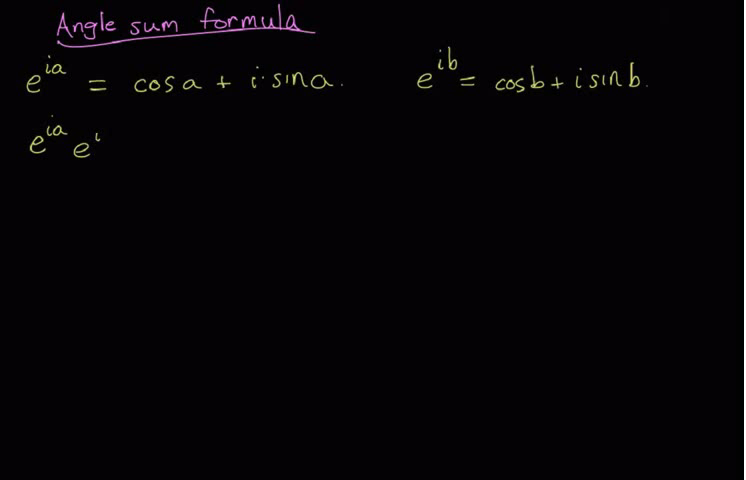 Angle sum formula
e^{ia} = cos a + i·sin a. e^{ib} = cos b + i sin b.
e^{ia} e^{i